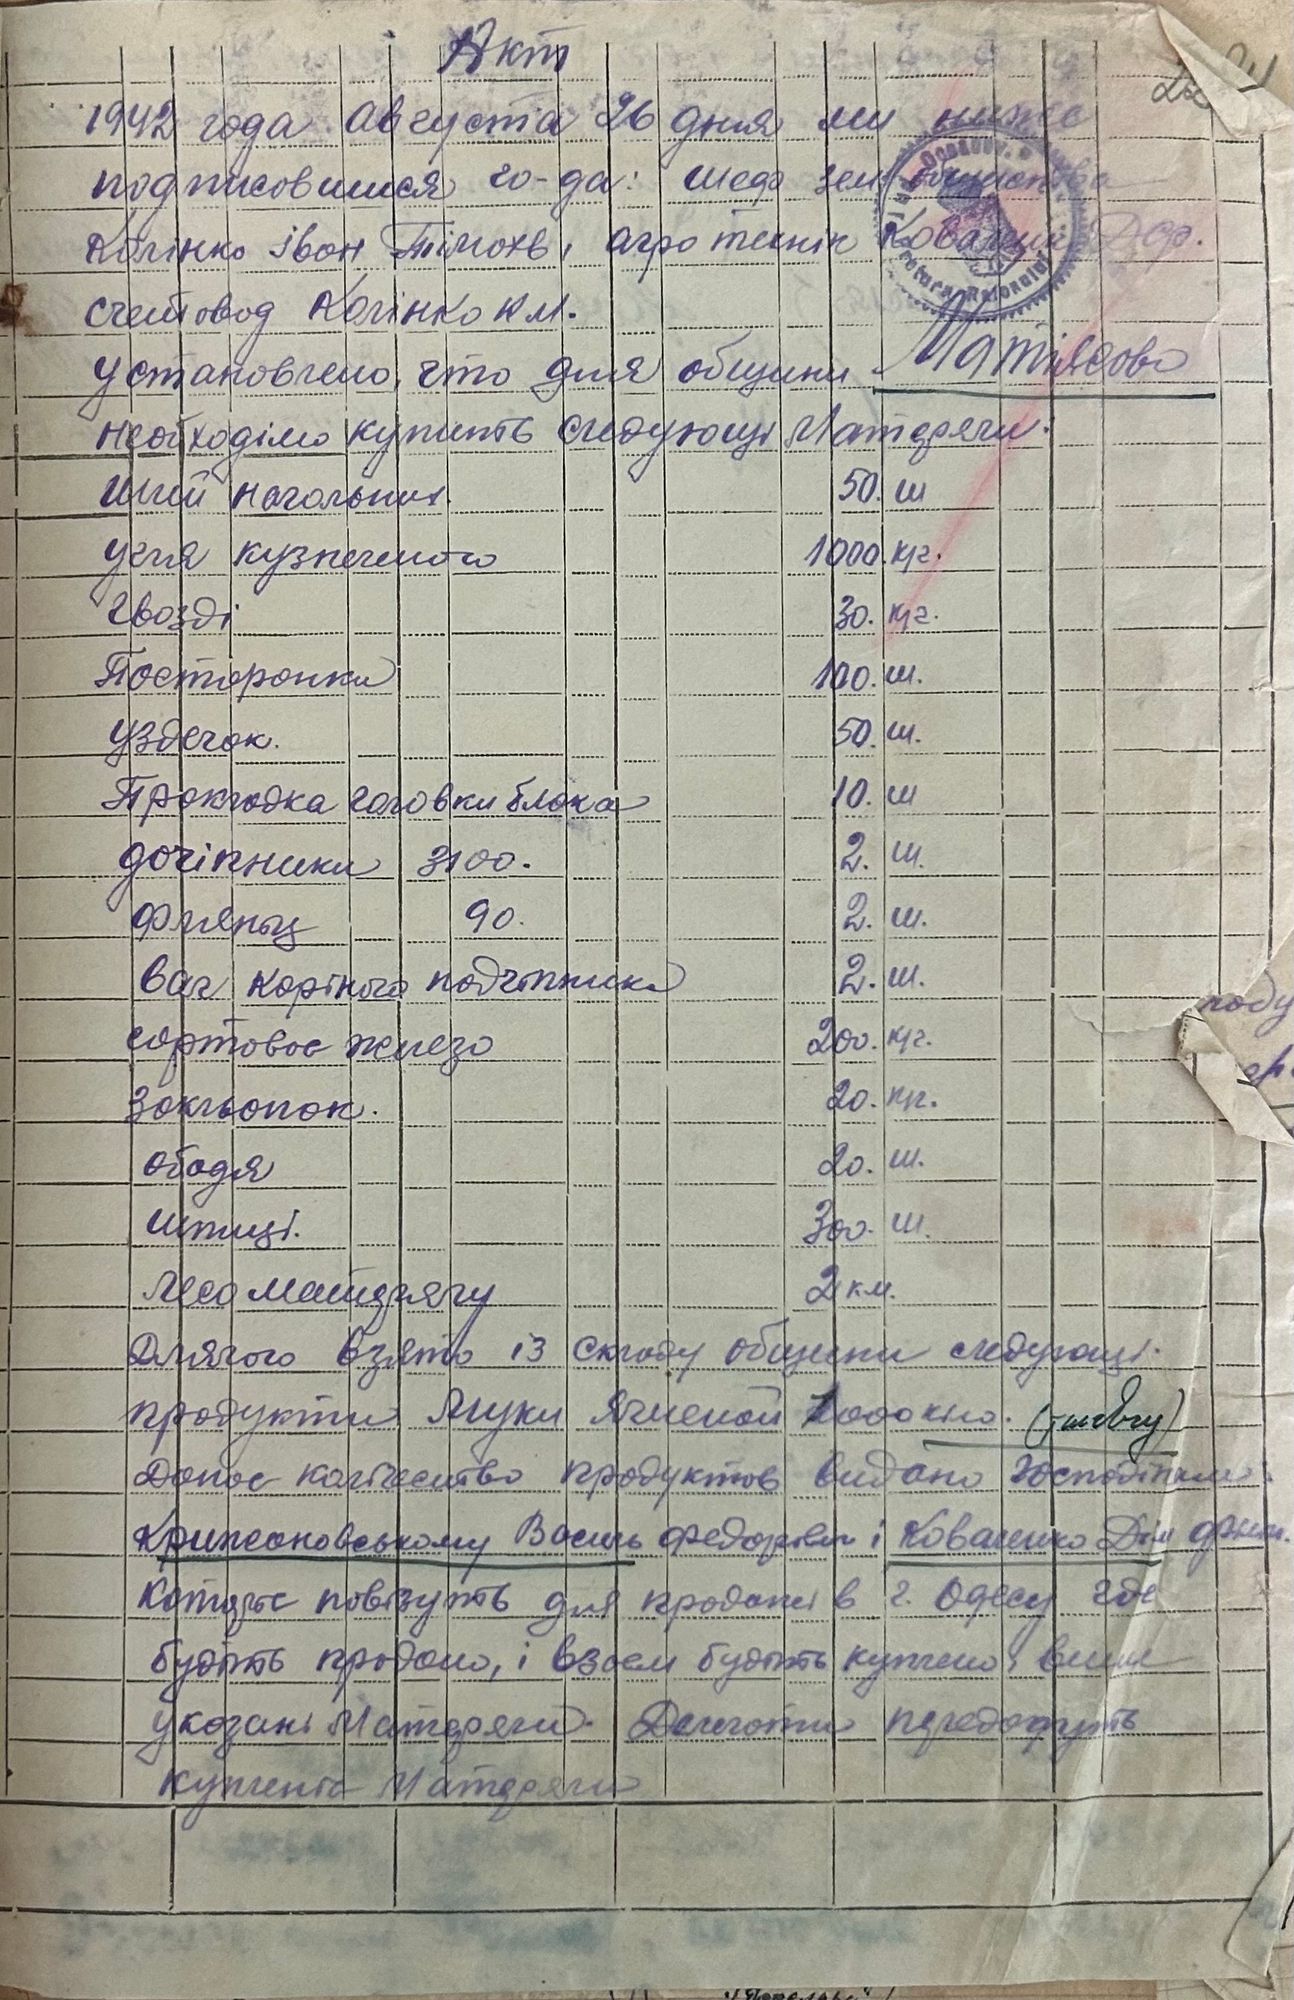 Акт
1942 года августа 26 дня ми ниже
подписовшися го-да: шеф зем
Калінко Івон Тімохв, агротехнік Ковальчи Дор.
счетовод Калінко К М.
установлено, что для общини Матіясово
необходімо купить следующі Матеряли:
шлей нагольних 50. ш
угля кузнечного 1000. кг.
гвозді 30. кг.
Посторонки 100. ш.
уздечок. 50. ш.
Прокладка головки блока 10. ш
дочіпники 3100. 2. ш.
Флянец 90. 2. ш.
вал корінного подчіпника 2. ш.
сортовое железо 200. кг.
Закльопок. 20. кг.
ободя 20. ш.
шпиці. 300. ш.
Лесоматерялу 2 км.
Длячого взято із складу общини следующі
продукти Муки Ячменой 1000 кіло.
Даное колічество продуктов видано господінами:
Крижоновському Василь Федорович і Коваленко Дім
Которіе повізуть для продажі в г. Одесу где
будіть продано, і взаем будіть куплено више
указані Матеряли.
купленіе Матеряли